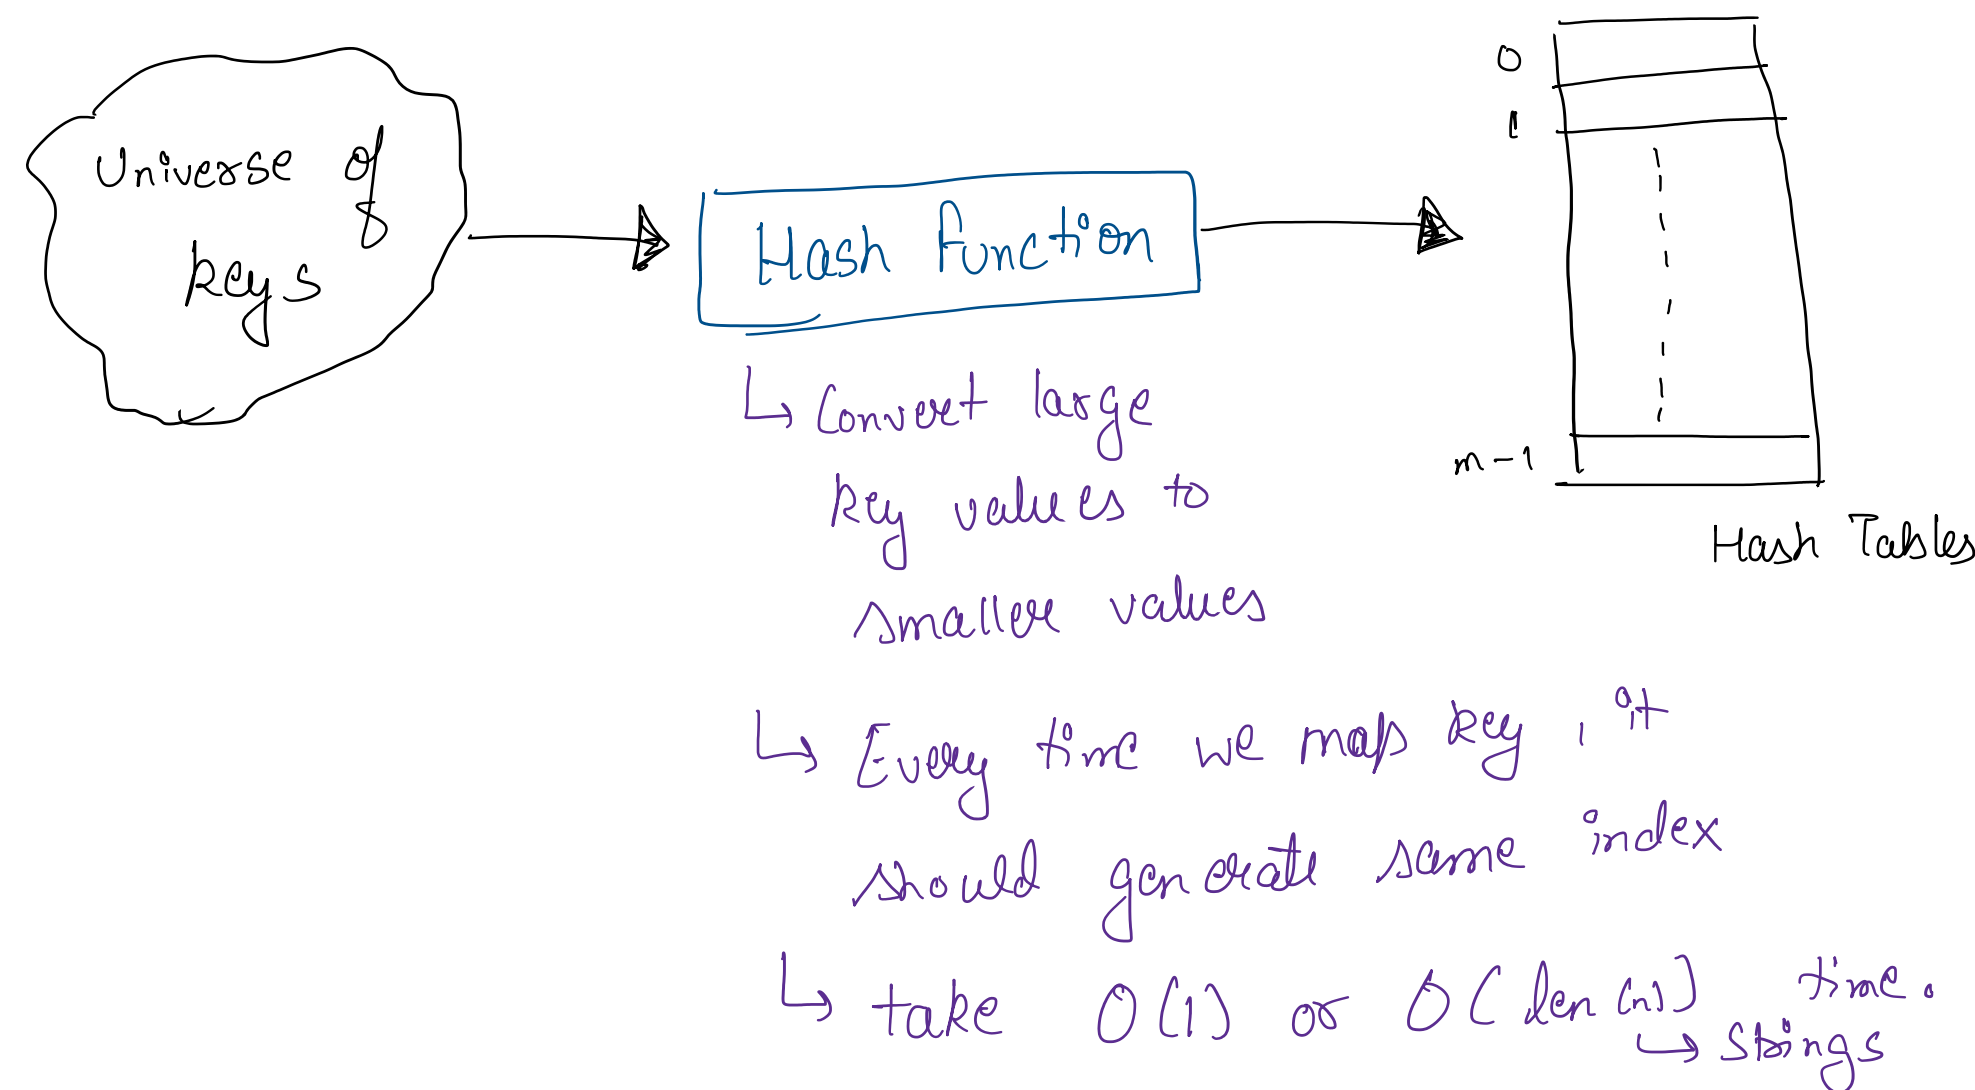 Universe of
keys
Hash function
0
1
m-1
Hash Tables
↳ Convert large
key values to
smaller values
↳ Every time we map key, it
should generate same index
↳ take O(1) or O(len(n)) time.
↳ strings